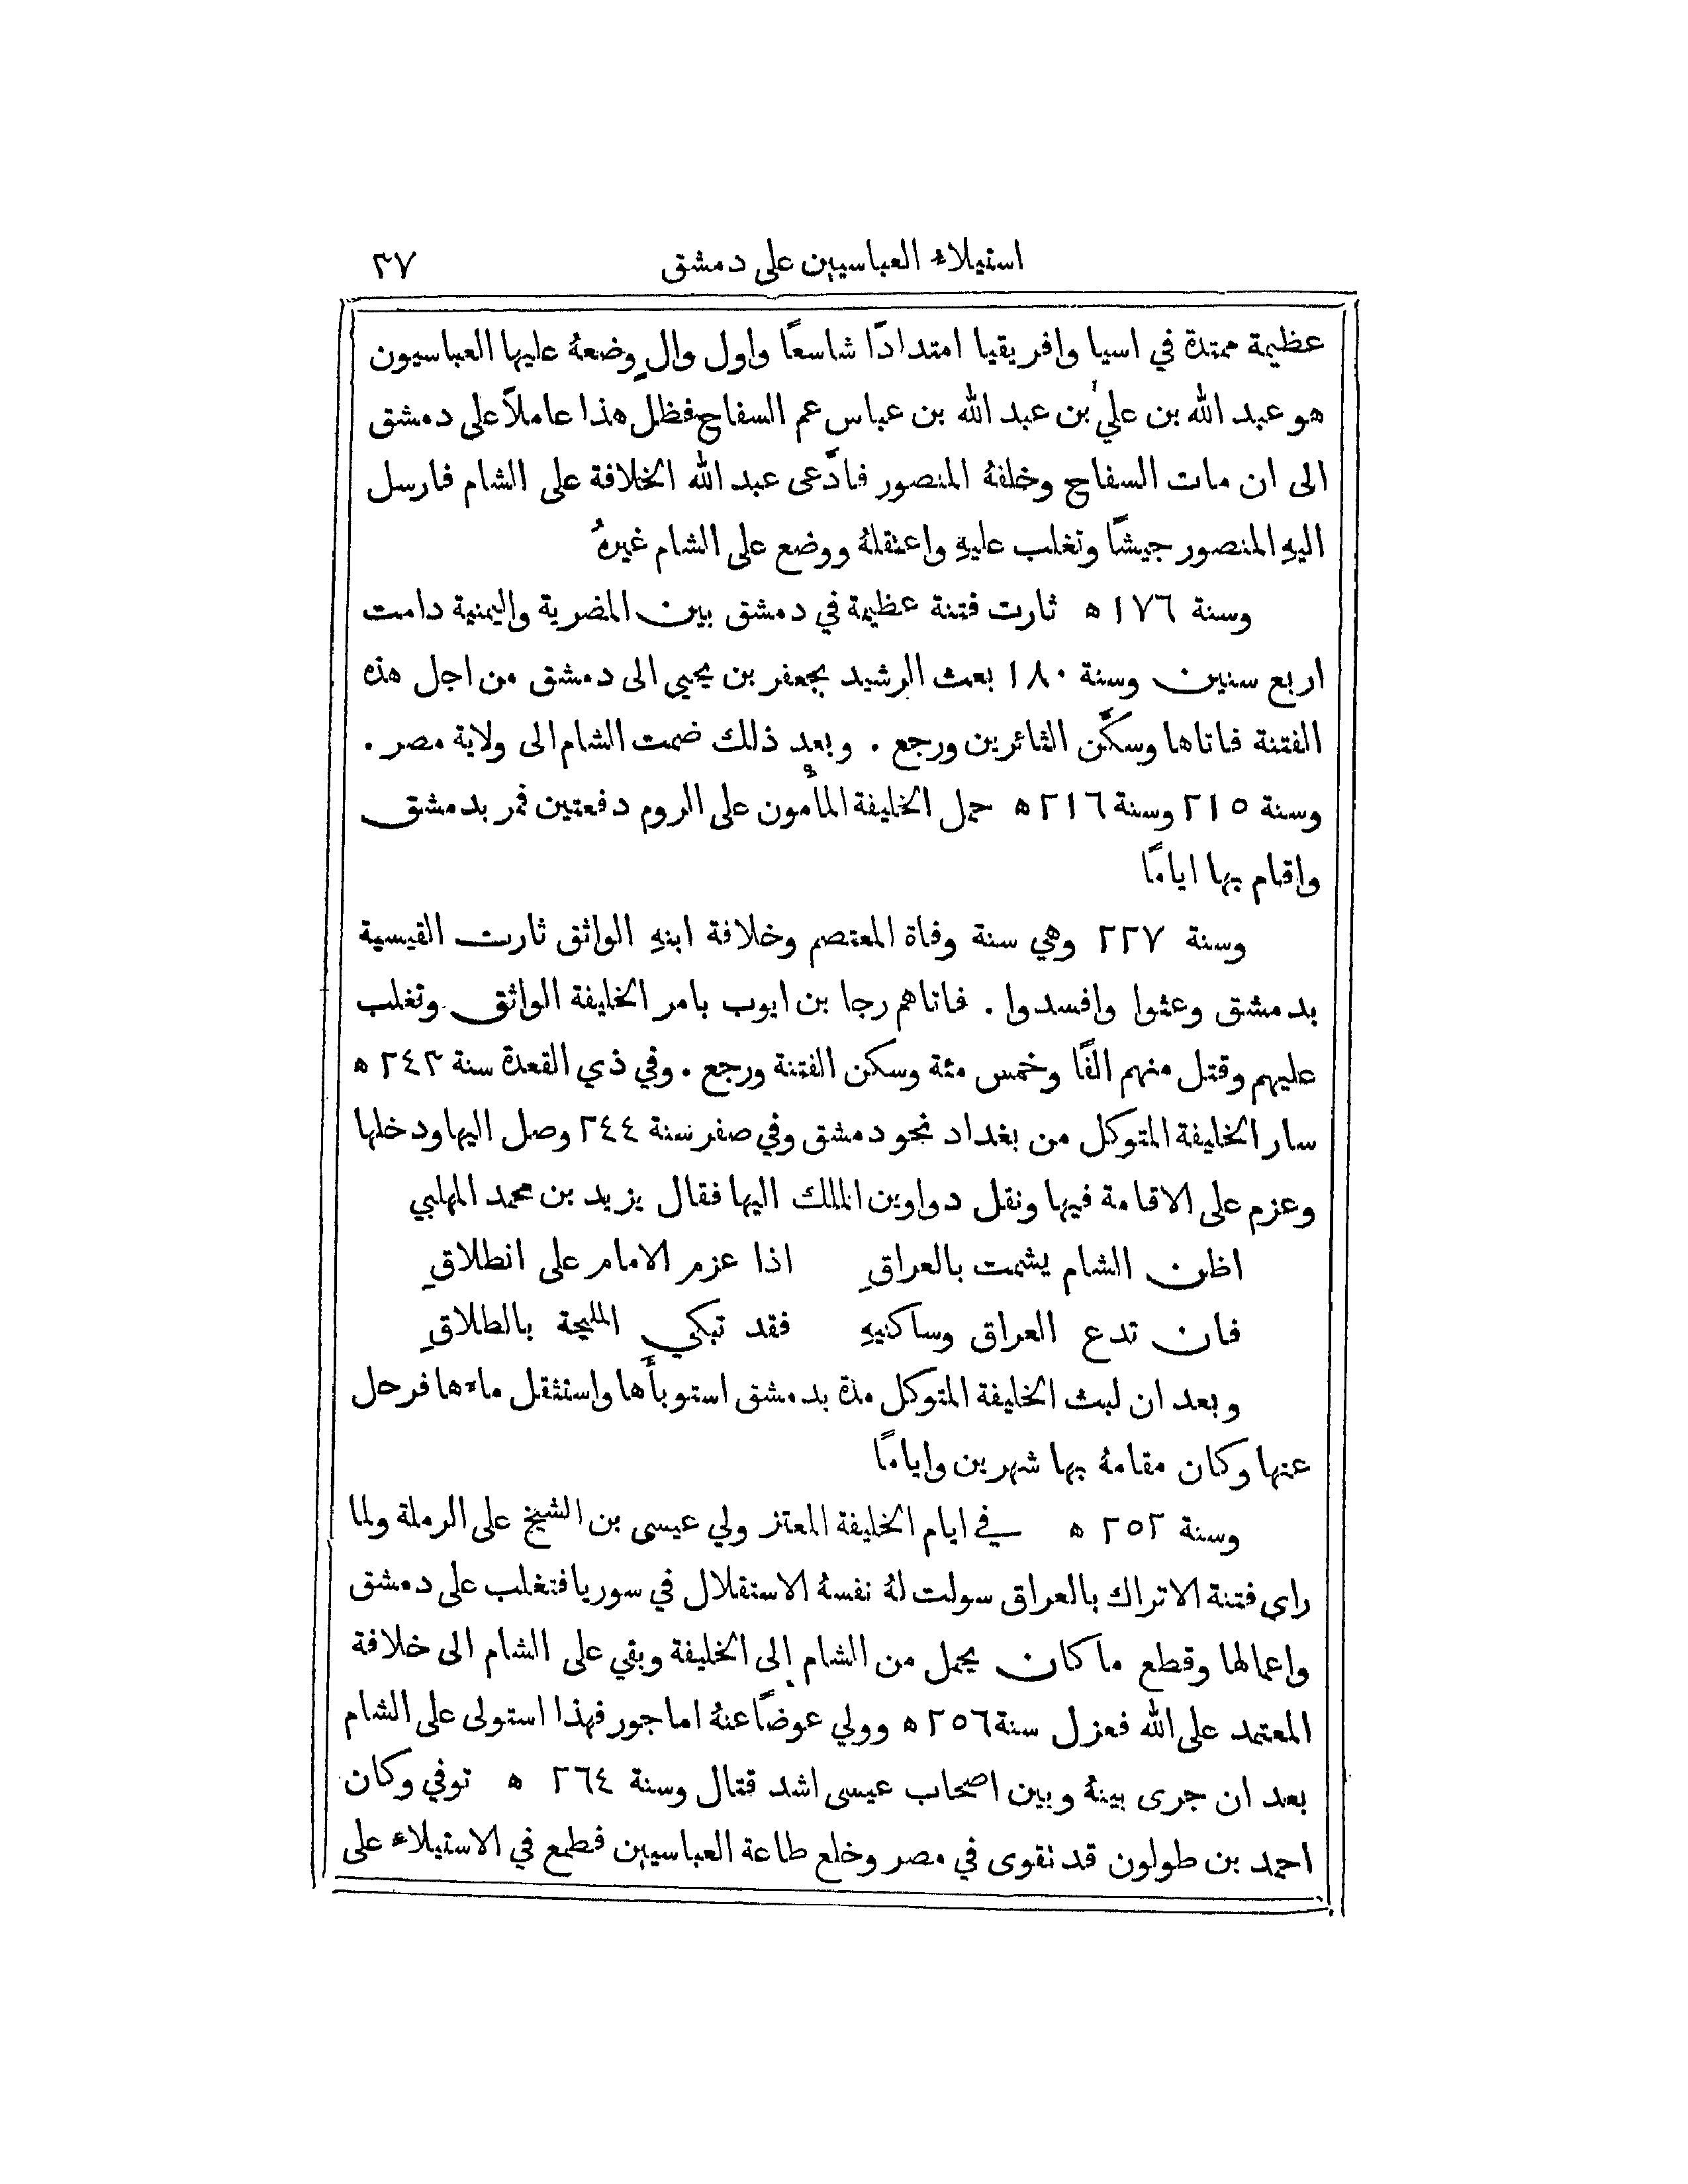 استيلاء العباسيين على دمشق ٣٧
عظيمة ممتدة في اسيا وافريقيا امتدادًا شاسعًا واول والٍ وضعهُ عليها العباسيون
هو عبد الله بن علي بن عبد الله بن عباس عم السفاح فظل هذا عاملاً على دمشق
الى ان مات السفاح وخلفهُ المنصور فادَّعى عبد الله الخلافة على الشام فارسل
اليهِ المنصور جيشًا وتغلب عليهِ واعتقلهُ ووضع على الشام غيرهُ
وسنة ١٧٦ ه ثارت فتنة عظيمة في دمشق بين المضرية واليمنية دامت
اربع سنين وسنة ١٨٠ بعث الرشيد بجعفر بن يحيى الى دمشق من اجل هذه
الفتنة فاتاها وسكَّن الثائرين ورجع . وبعد ذلك ضمت الشام الى ولاية مصر .
وسنة ٢١٥ وسنة ٢١٦ ه حمل الخليفة المأمون على الروم دفعتين فمر بدمشق
واقام بها ايامًا
وسنة ٢٢٧ وهي سنة وفاة المعتصم وخلافة ابنهِ الواثق ثارت القيسية
بدمشق وعثوا وافسدوا . فاتاهم رجا بن ايوب بامر الخليفة الواثق وتغلب
عليهم وقتل منهم الفًا وخمس مئة وسكن الفتنة ورجع . وفي ذي القعدة سنة ٢٤٣ ه
سار الخليفة المتوكل من بغداد نحو دمشق وفي صفر سنة ٢٤٤ وصل اليها ودخلها
وعزم على الاقامة فيها ونقل دواوين الملك اليها فقال يزيد بن محمد المهلبي
اظن الشام يشمت بالعراقِ اذا عزم الامام على انطلاقِ
فان تدع العراق وساكنيهِ فقد تبكي المليحة بالطلاقِ
وبعد ان لبث الخليفة المتوكل مدة بدمشق استوبأها واستثقل ماءها فرحل
عنها وكان مقامهُ بها شهرين وايامًا
وسنة ٢٥٢ ه في ايام الخليفة المعتز ولي عيسى بن الشيخ على الرملة ولما
راى فتنة الاتراك بالعراق سولت لهُ نفسهُ الاستقلال في سوريا فتغلب على دمشق
واعمالها وقطع ما كان يحمل من الشام إلى الخليفة وبقي على الشام الى خلافة
المعتمد على الله فعزل سنة ٢٥٦ ه وولي عوضًا عنهُ اماجور فهذا استولى على الشام
بعد ان جرى بينهُ وبين اصحاب عيسى اشد قتال وسنة ٢٦٤ ه توفي وكان
احمد بن طولون قد تقوى في مصر وخلع طاعة العباسيين فطمع في الاستيلاء على